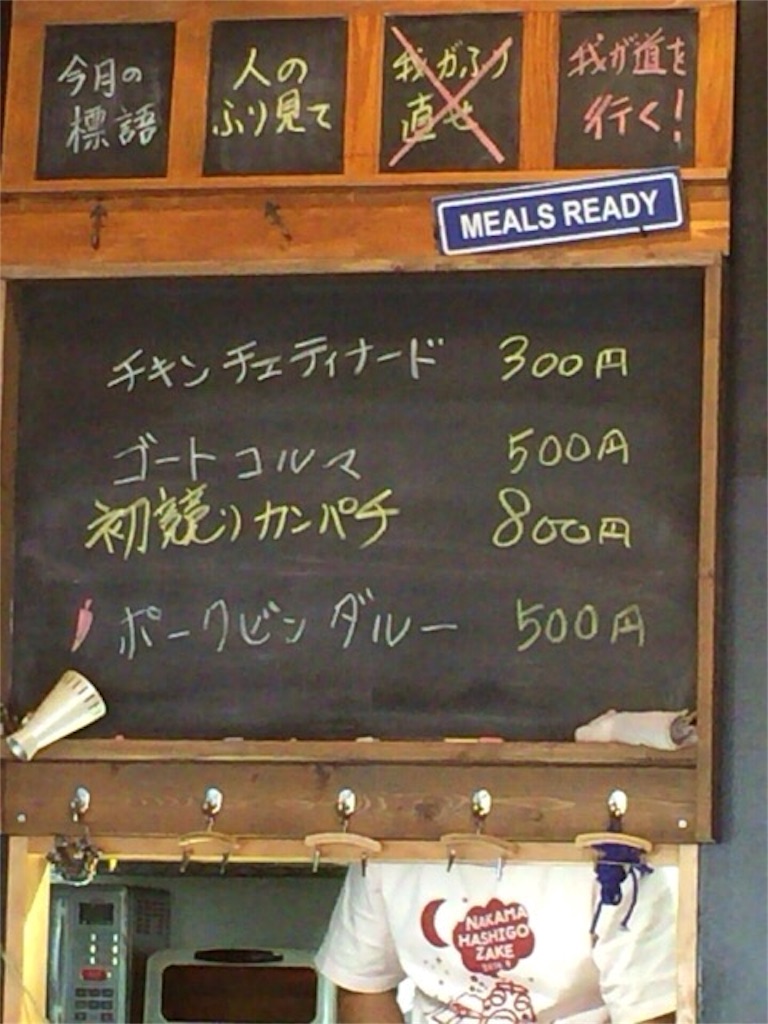 今月の
標語
人の
ふり見て
我がふり
直せ
我が道を
行く!
MEALS READY
チキンチェティナード 300円
ゴートコルマ 500円
初競りカンパチ 800円
ポークビンダルー 500円
NAKAMA
HASHIGO
ZAKE